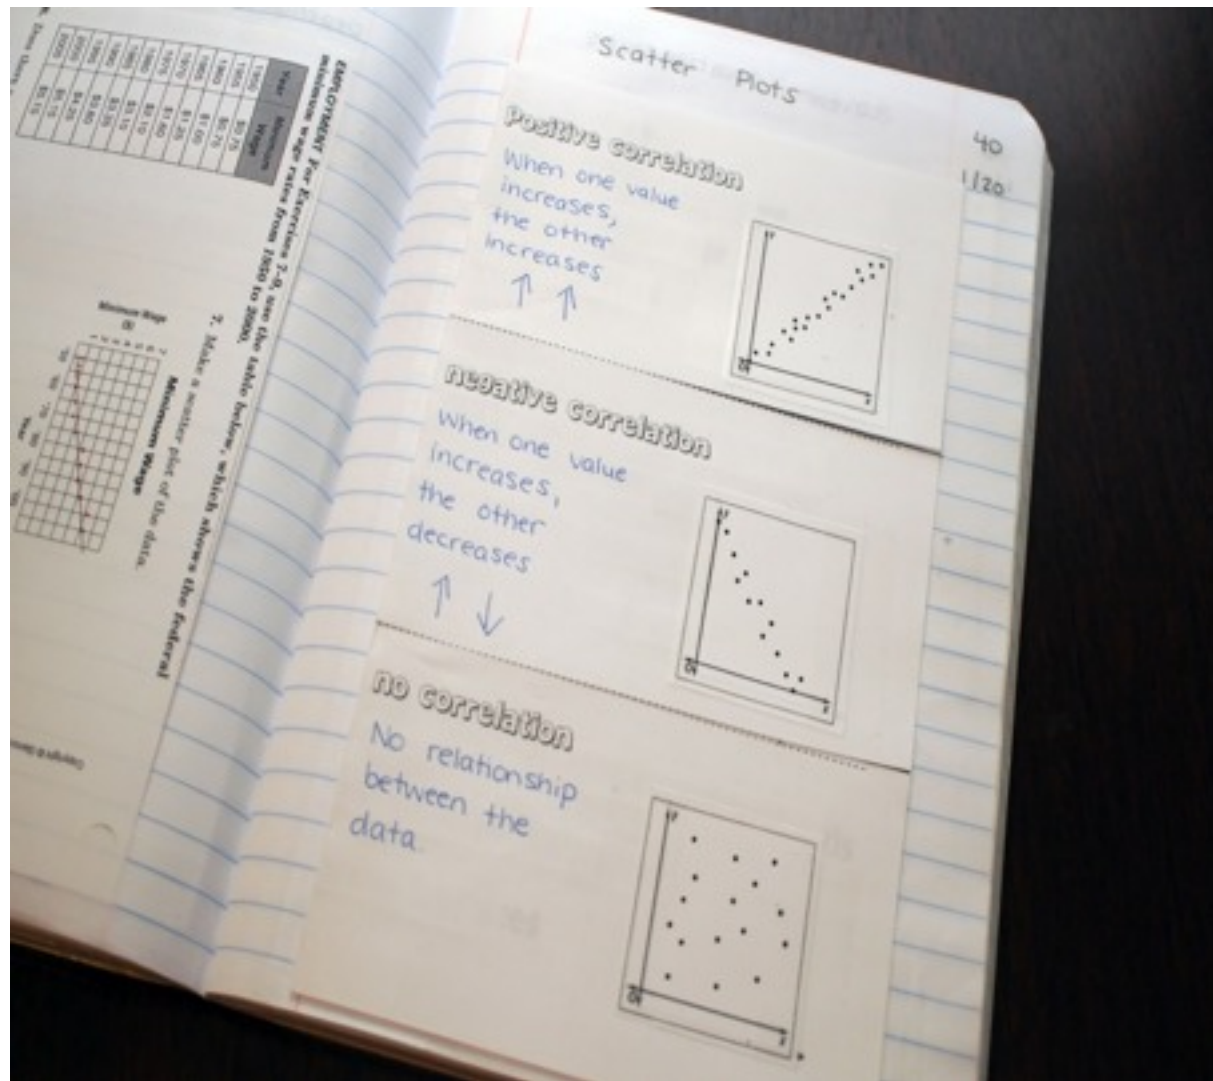 Scatter Plots
40
1/20
Positive correlation
When one value
increases,
the other
increases
↑ ↑
y
x
negative correlation
When one value
increases,
the other
decreases
↑ ↓
y
x
no correlation
No relationship
between the
data
y
x
EMPLOYMENT For Exercises 7-9, use the table below, which shows the federal
minimum wage rates from 1950 to 2000.
Year Minimum Wage
1950 $0.75
1955 $0.75
1960 $1.00
1965 $1.25
1970 $1.60
1975 $2.10
1980 $3.10
1985 $3.35
1990 $3.80
1995 $4.25
2000 $5.15
7. Make a scatter plot of the data.
Minimum Wage
Minimum Wage
($)
7
6
5
4
3
2
1
Year